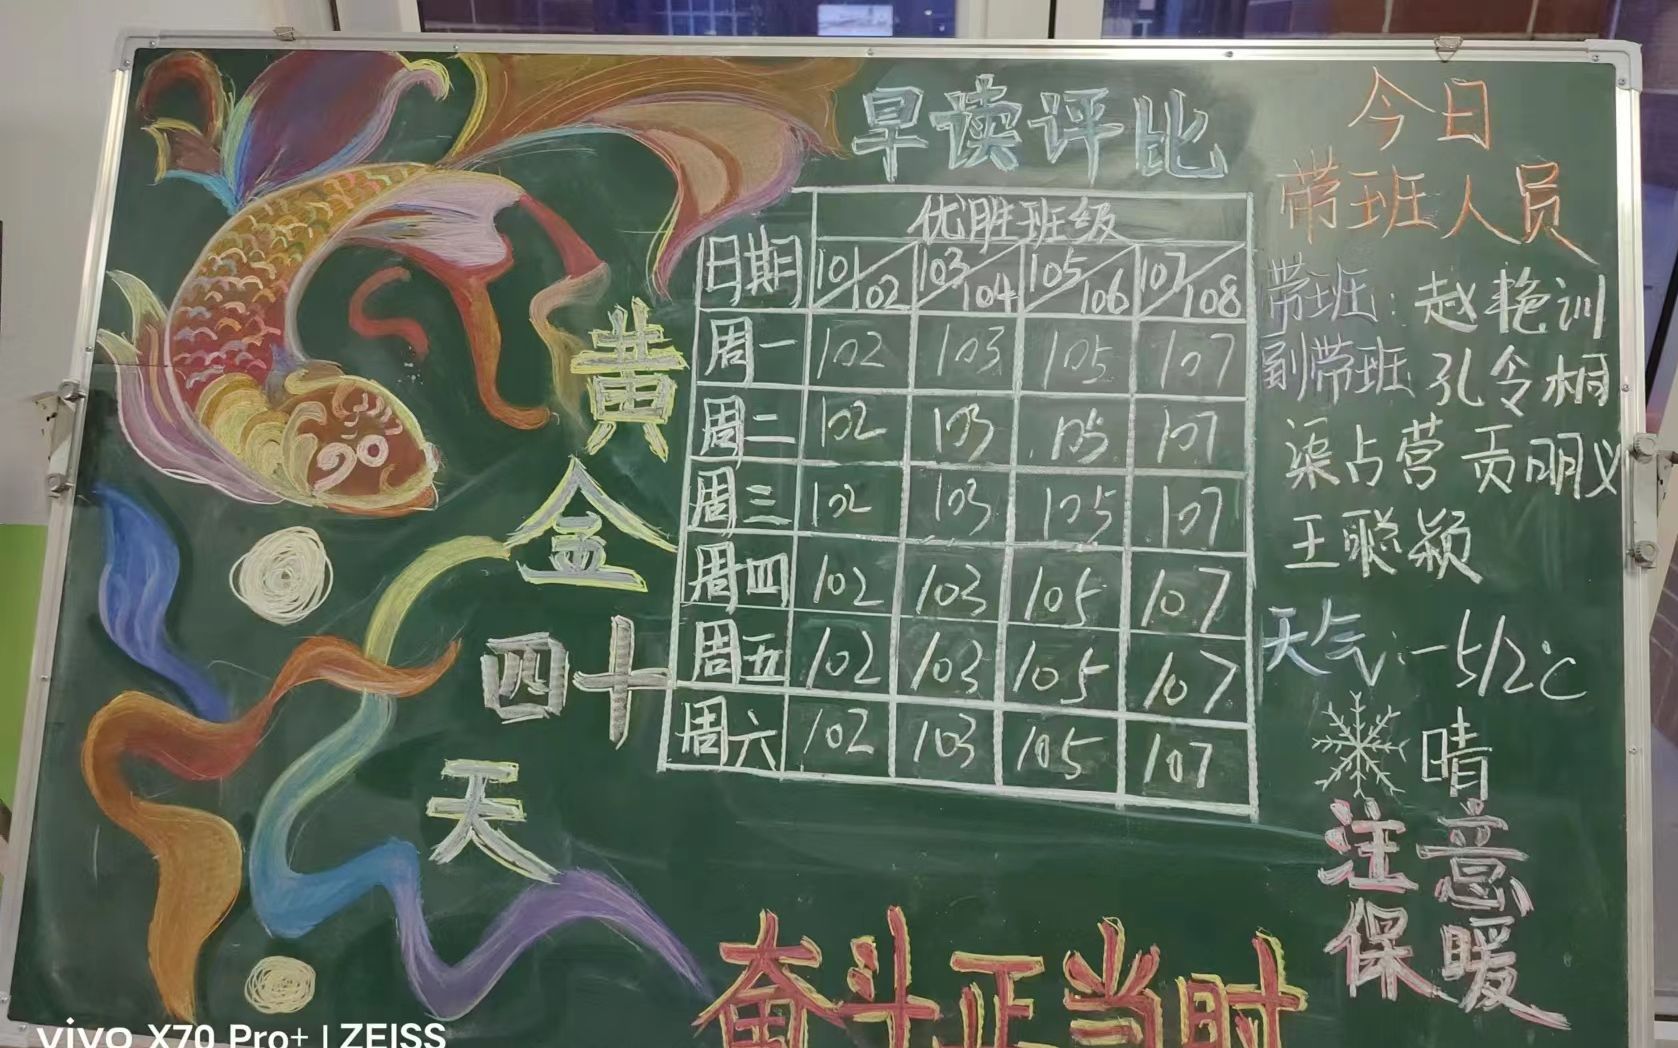 早读评比
日期 优胜班级
101/102 103/104 105/106 107/108
周一 102 103 105 107
周二 102 103 105 107
周三 102 103 105 107
周四 102 103 105 107
周五 102 103 105 107
周六 102 103 105 107
黄
金
四十
天
奋斗正当时
今日
带班人员
带班: 赵艳训
副带班 孔令桐
渠占营 贡明义
王聪颖
天气: -5/2℃
晴
注意
保暖
vivo X70 Pro+ | ZEISS